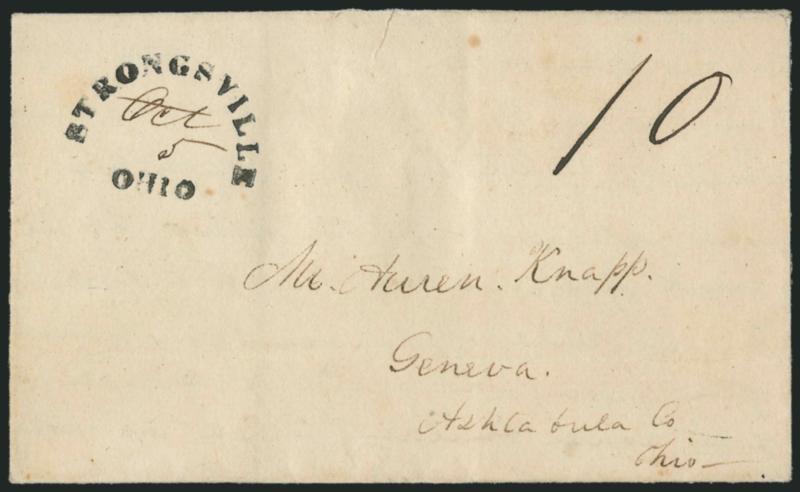 STRONGSVILLE
Oct
5
OHIO
10
Mr. Auren. Knapp.
Geneva.
Ashtabula Co
Ohio